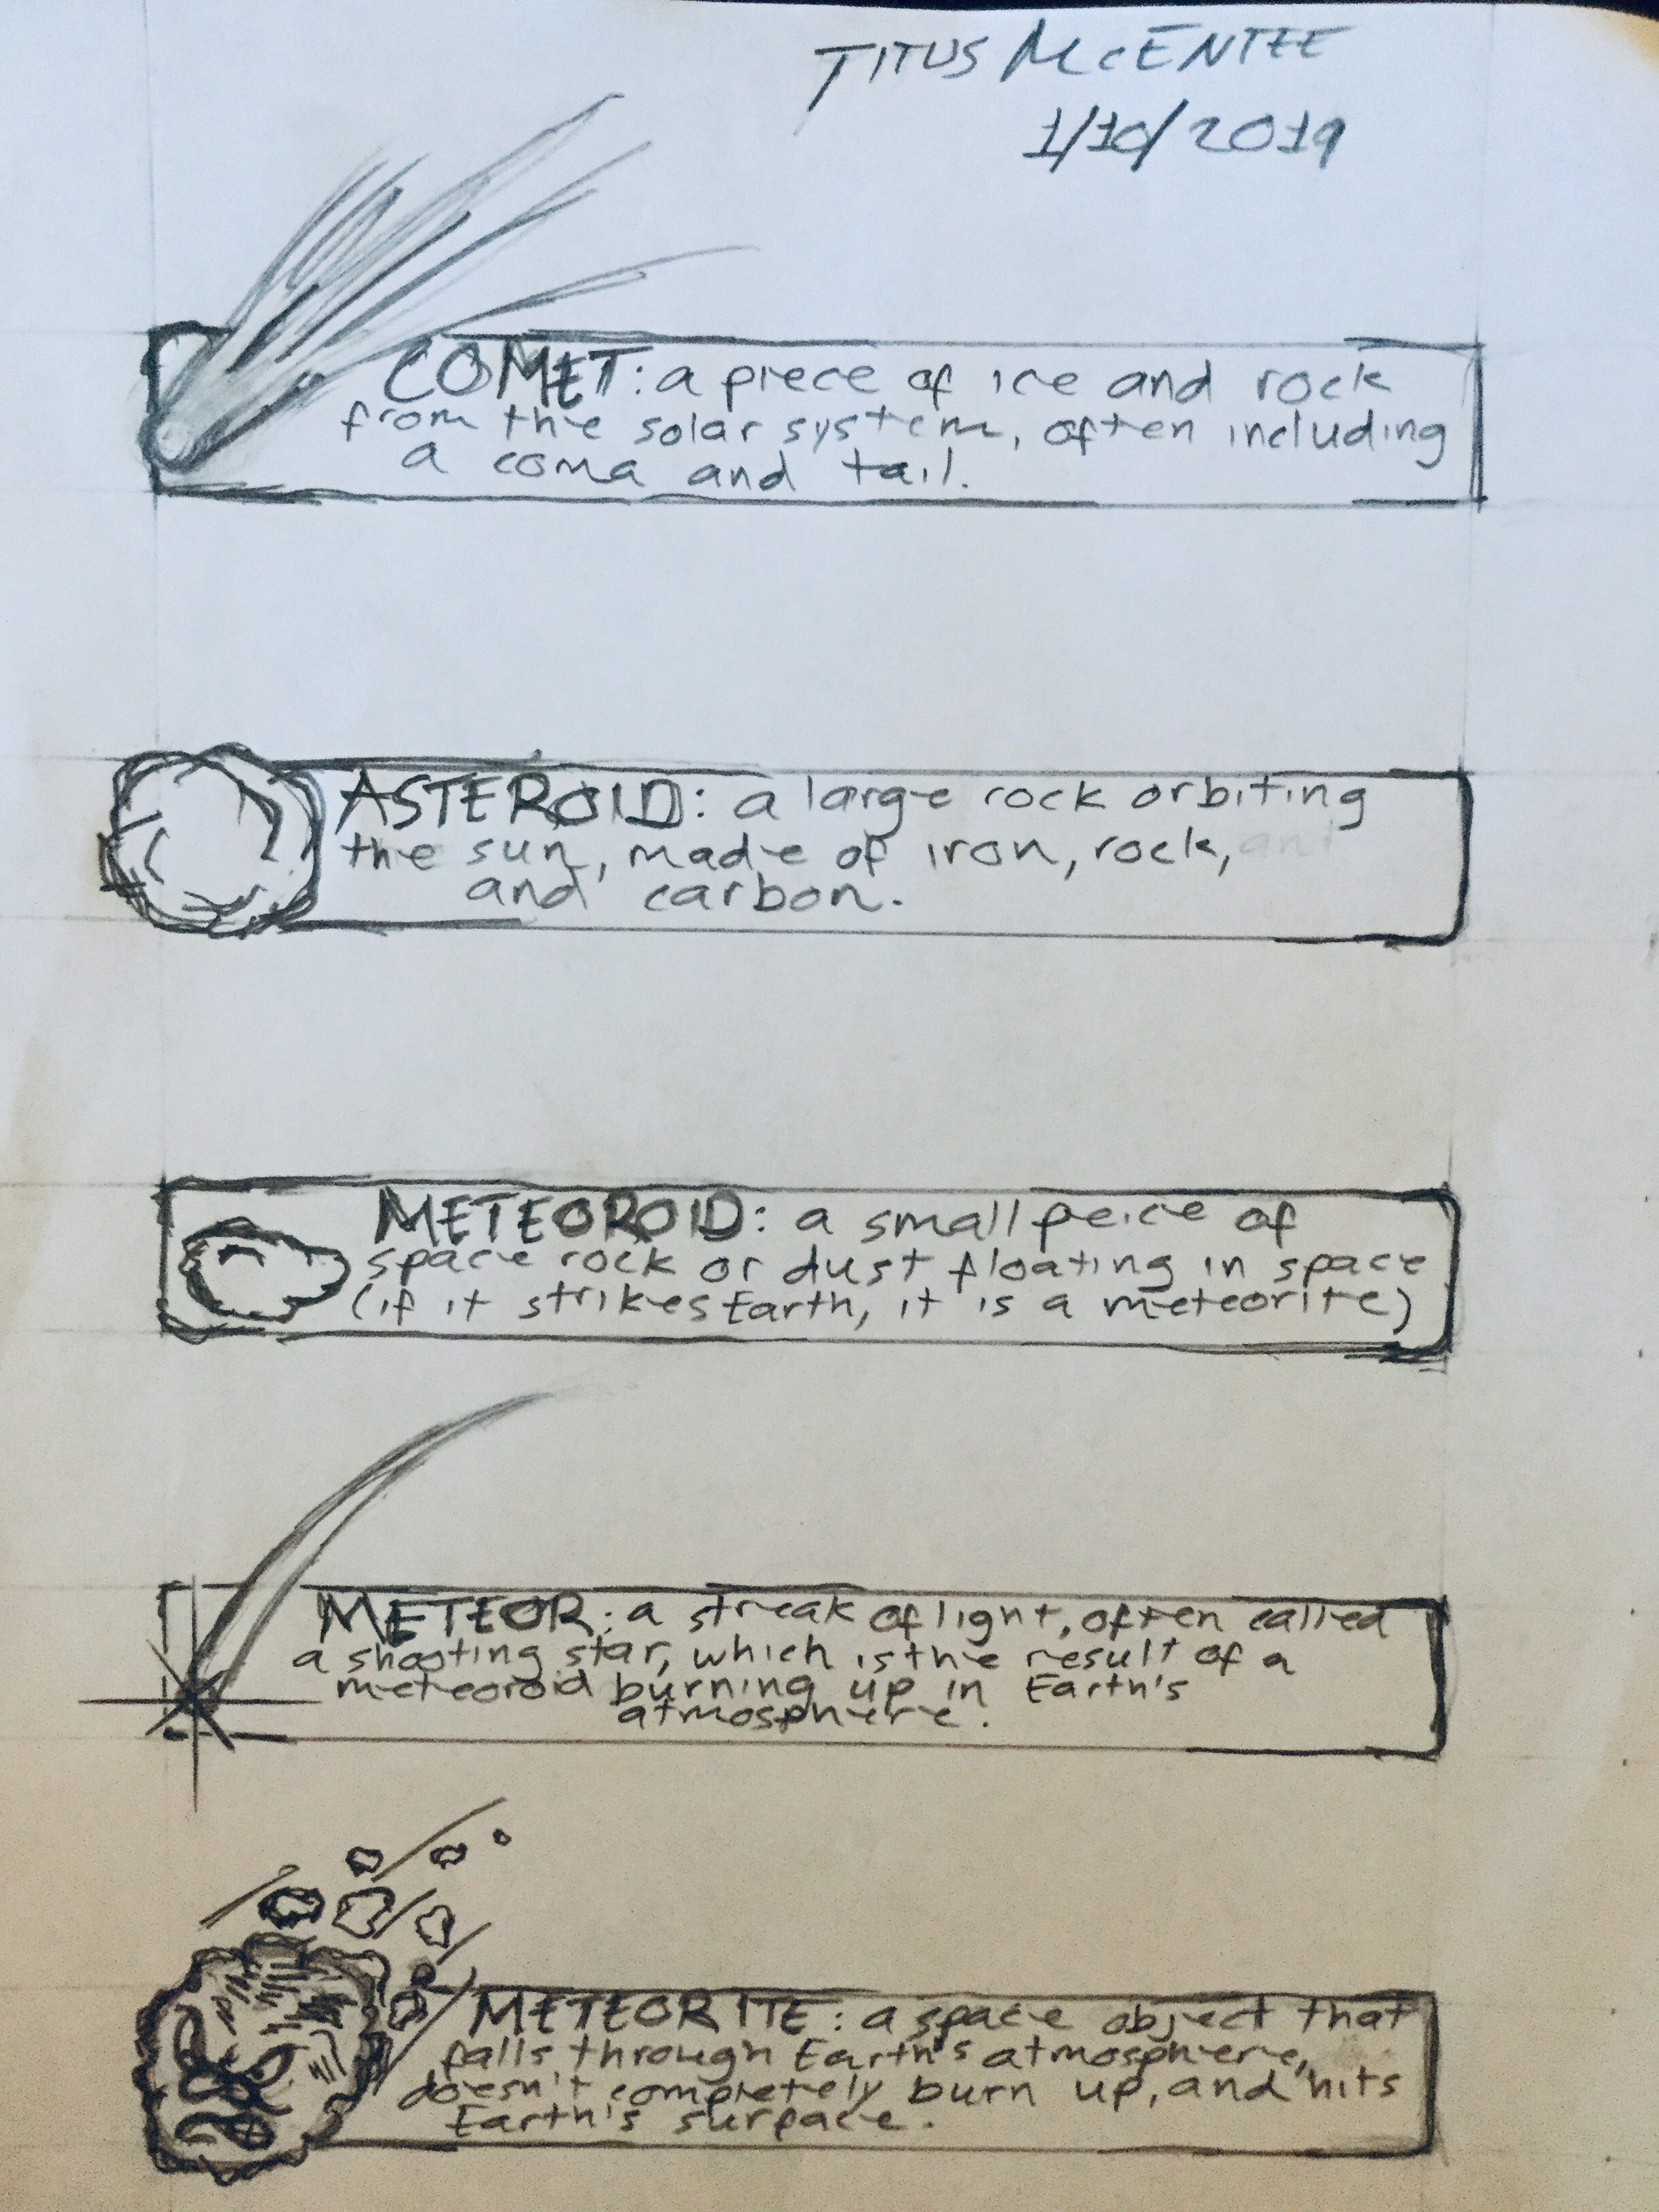 TITUS McENTEE
1/10/2019
COMET: a piece of ice and rock
from the solar system, often including
a coma and tail.
ASTEROID: a large rock orbiting
the sun, made of iron, rock,
and carbon.
METEOROID: a small peice of
space rock or dust floating in space
(if it strikes Earth, it is a meteorite)
METEOR: a streak of light, often called
a shooting star, which is the result of a
meteoroid burning up in Earth's
atmosphere.
METEORITE: a space object that
falls through Earth's atmosphere,
doesn't completely burn up, and hits
Earth's surface.